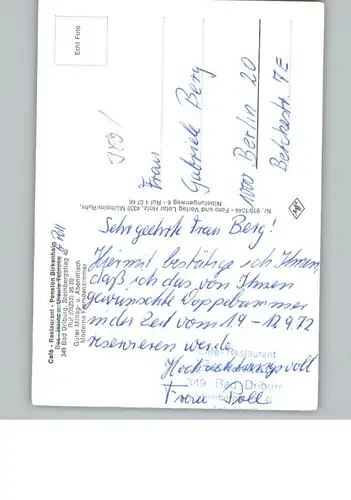 Echt Foto
Frau
Gabriele Berg
1000 Berlin 20
Betckestr. 7E
Nr. 910/1344 - Foto und Verlag Lotar Holtz, 4330 Mülheim/Ruhr,
Nibelungenweg 6 - Ruf 4 07 66
Agfa
Café - Restaurant - Pension Birkenhain
349 Bad Driburg, Steinbergstieg 40
Ruf (05253) 26 89
Guter Mittag- u. Abendtisch
Moderne Fremdenzimmer
Sehr geehrte Frau Berg!
Hiermit bestätige ich Ihnen,
daß ich das von Ihnen
gewünschte Doppelzimmer
in der Zeit vom 1.9 - 12.9.72
reservieren werde.
Hochachtungsvoll
Frau Poll
Café - Restaurant
349 Bad Driburg